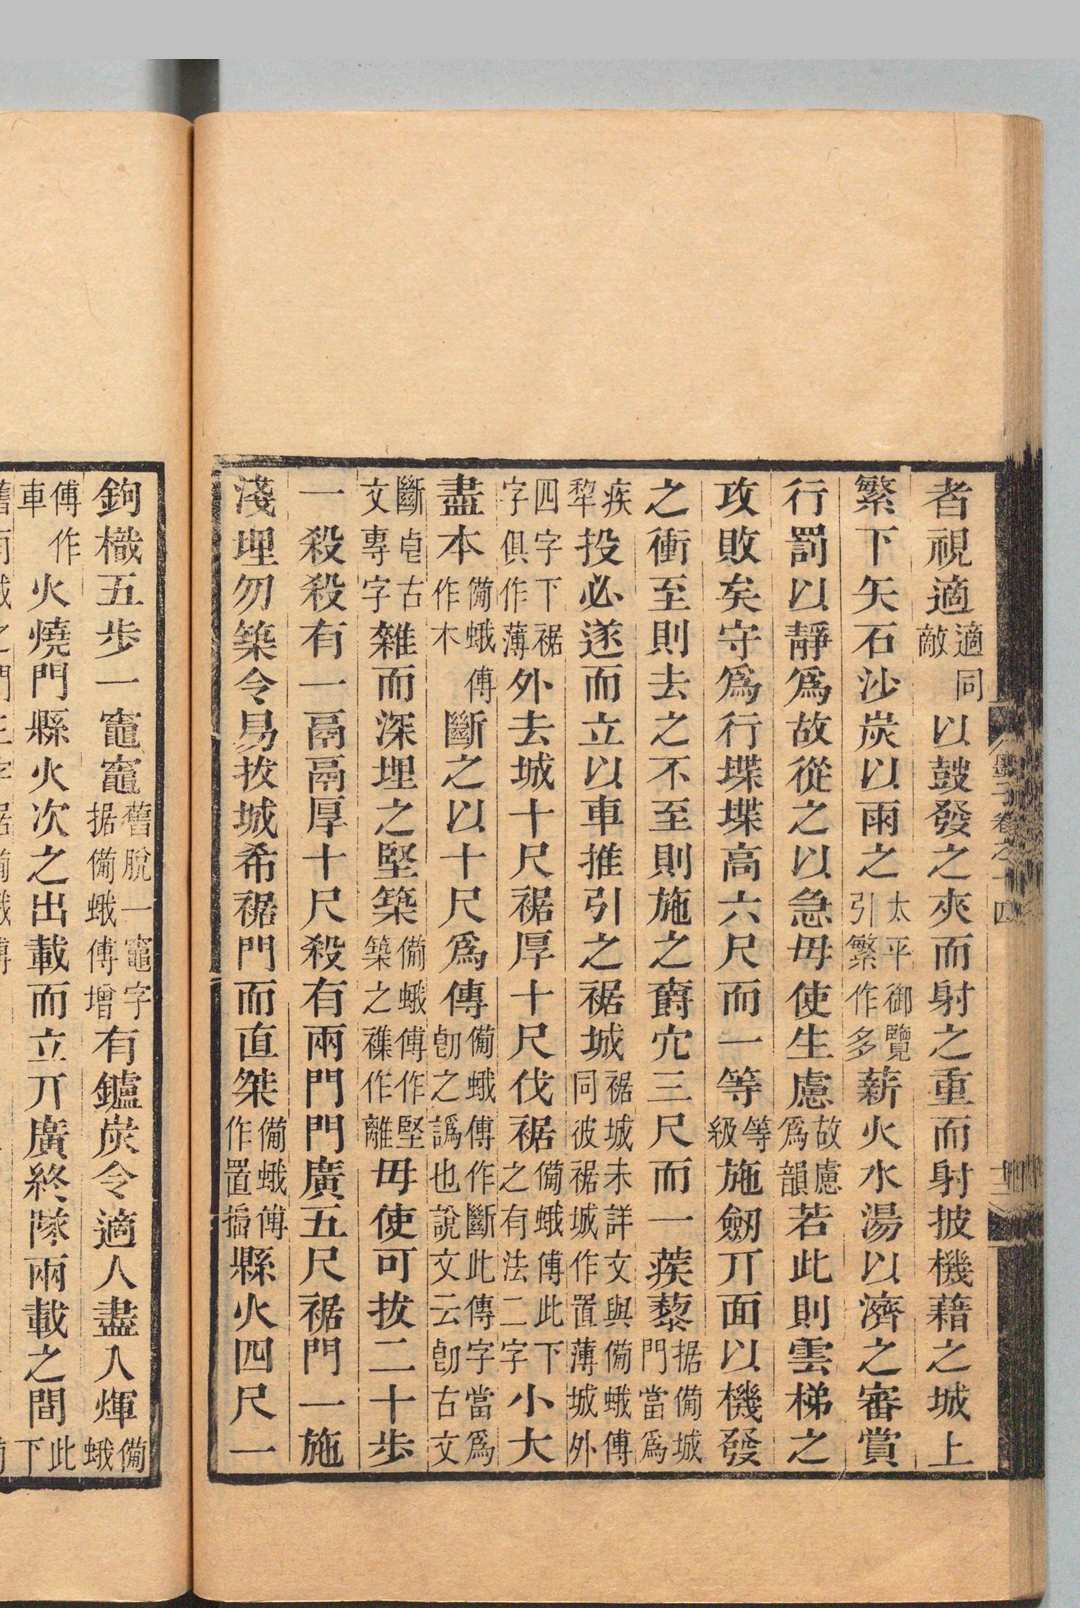 墨子卷之十四
者視適適同敵以鼓發之夾而射之重而射披機藉之城上
繁下矢石沙炭以雨之太平御覽引繁作多薪火水湯以濟之審賞
行罰以靜爲故從之以急毋使生慮故慮爲韻若此則雲梯之
攻敗矣守爲行堞堞高六尺而一等等級施劒丌面以機發
之衝至則去之不至則施之爵穴三尺而一蒺藜据備城門當爲
疾犂投必遂而立以車推引之裾城裾城未詳文與備蛾傅同彼裾城作置薄城外
四字下裾字俱作薄外去城十尺裾厚十尺伐裾備蛾傅此下之有法二字小大
盡本備蛾傅作木斷之以十尺爲傳備蛾傅作斷此傳字當爲㔞之譌也說文云㔞古文
斷皀古文專字雜而深埋之堅築備蛾傅作堅築之襍作離毋使可拔二十步
一殺殺有一鬲鬲厚十尺殺有兩門門廣五尺裾門一施
淺埋勿築令易拔城希裾門而直桀備蛾傅作置搗縣火四尺一
鉤樴五步一竈竈舊脫一竈字据備蛾傅增有鑪炭令適人盡入煇備蛾
傅作車火燒門縣火次之出載而立丌廣終隊兩載之間此下